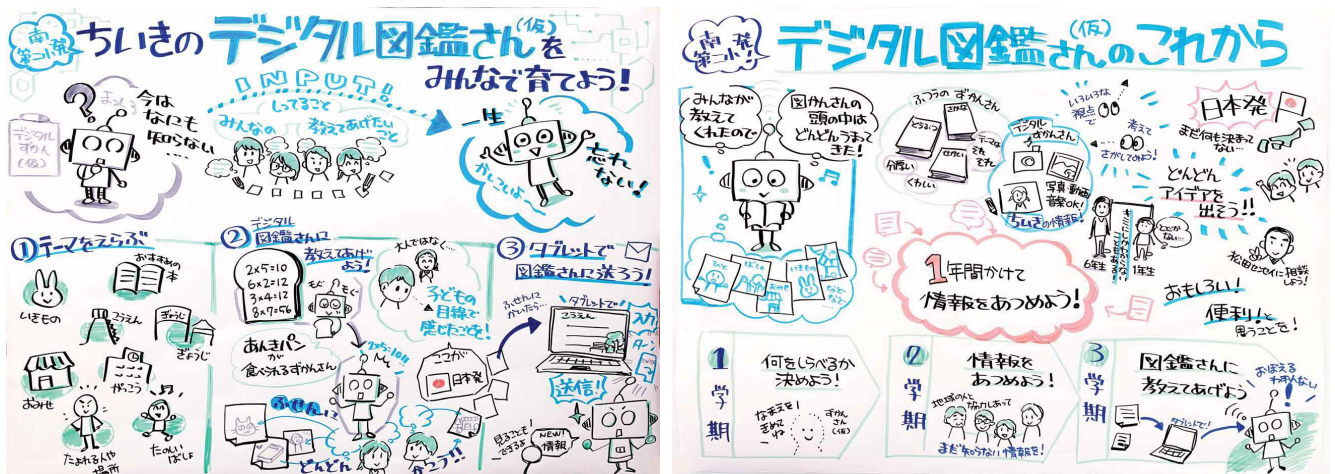 南
第二小発
ちいきの デジタル図鑑さん(仮)を
みんなで育てよう!
まっしろ
今は
なにも
知らない…
デジタル
ずかん
(仮)
INPUT!
しってること
みんなの
教えてあげたい
こと
一生
忘れ
ない!
かしこいよ
①テーマをえらぶ
いきもの
おすすめの
本
こうえん
ぎょうじ
ぎょうじ
おみせ
がっこう
たよれる人や
場所
たのしい
ばしょ
②デジタル
図鑑さんに
教えてあげ
よう!
2×5=10
6×2=12
3×4=12
8×7=56
もぐ
もぐ
あんきパン
が
食べられるずかんさん
2×5=10!!
大人ではなく…
子どもの
目線で
感じたことを!
ここが
日本発
ふせんに
どんどん
かこう!!
③タブレットで
図鑑さんに送ろう!
ふせんに
かいたら…
タブレットで
こうえん
入力
送信!
見ることも
できるよ
NEW!
情報
南発
第二小!
デジタル図鑑さん(仮)のこれから
みんなが
教えて
くれたので
図かんさんの
頭の中は
どんどんうまって
きた!
ひと
ぼくの
おみせ
いきもの
など
など
ふつうの ずかんさん
さかな
どうぶつ
せかい
テーマは
それ
ぞれ
分厚い
くわしい
デジタル
ずかんさん
写真・動画
音楽OK!
ちいきの情報!
いろいろな
視点
で
考えて
さがしてみよう!
日本発
まだ何も決まって
ない…
どんどん
アイデアを
出そう!!
6年生
1年生
とどか
ない…
松田センセイに相談
しよう!
おもしろい!
便利!と
思うことを!
1年間かけて
情報をあつめよう!
1学期
何をしらべるか
決めよう!
なまえを!
きめて
ね
ずかん
さん
(仮)
2学期
情報を
あつめよう!
地域の人と
協力しあって
まだ知らない情報を!
3学期
図鑑さんに
教えてあげよう
タブレットで!
おぼえる
わすれない!